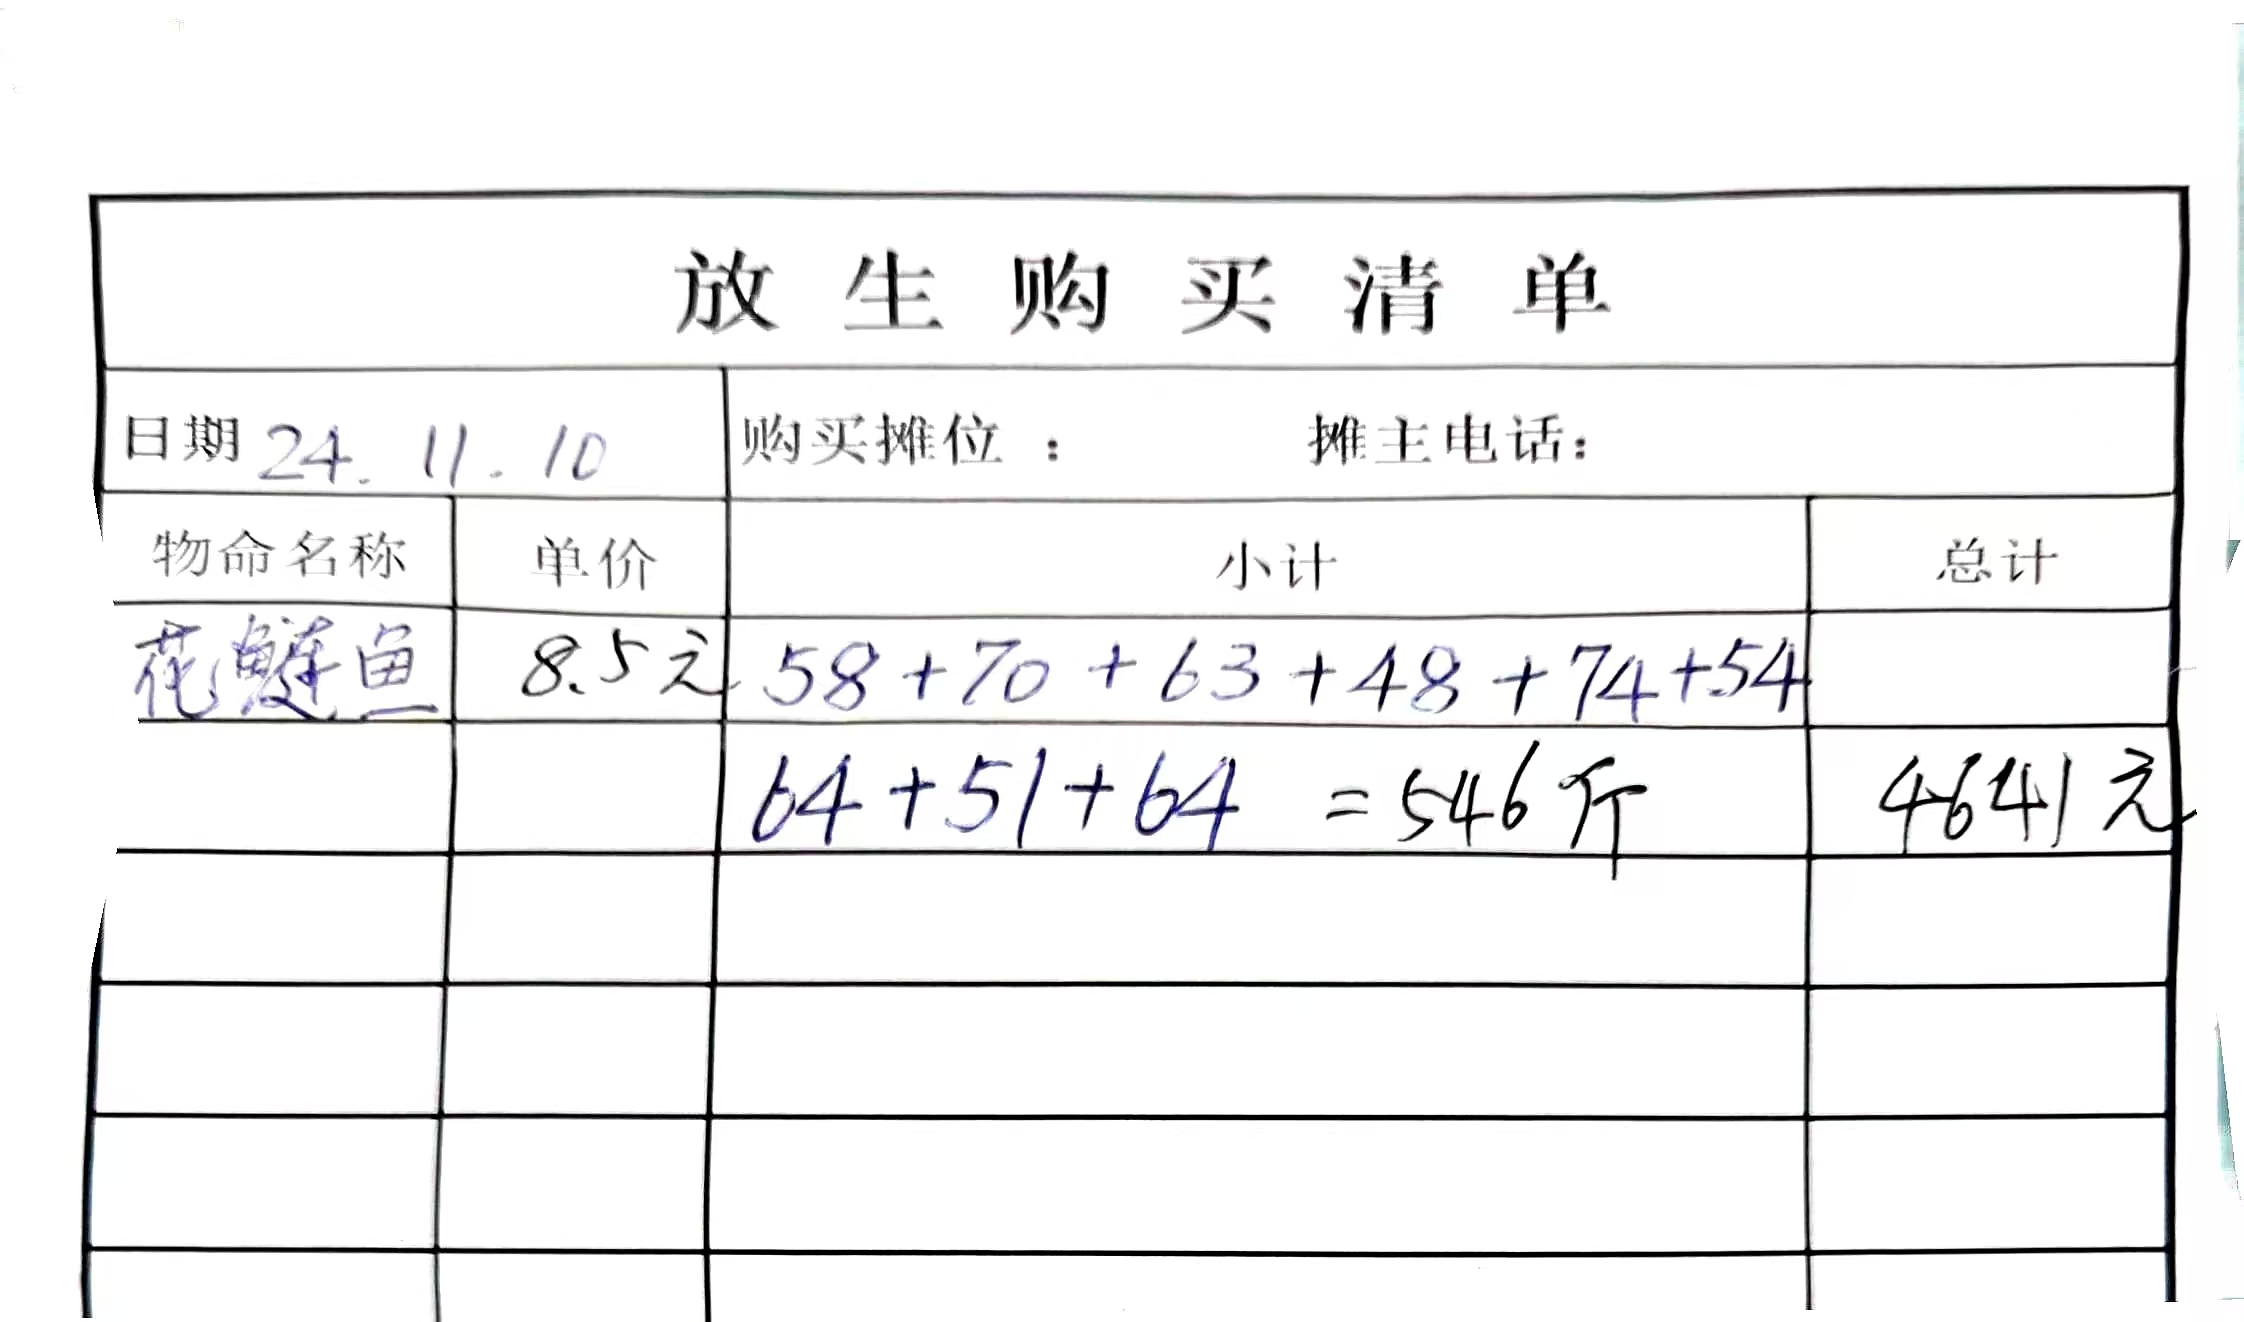 放生购买清单
日期 24.11.10 购买摊位： 摊主电话：
物命名称 单价 小计 总计
花鲢鱼 8.5元 58+70+63+48+74+54
64+51+64 =546斤 4641元